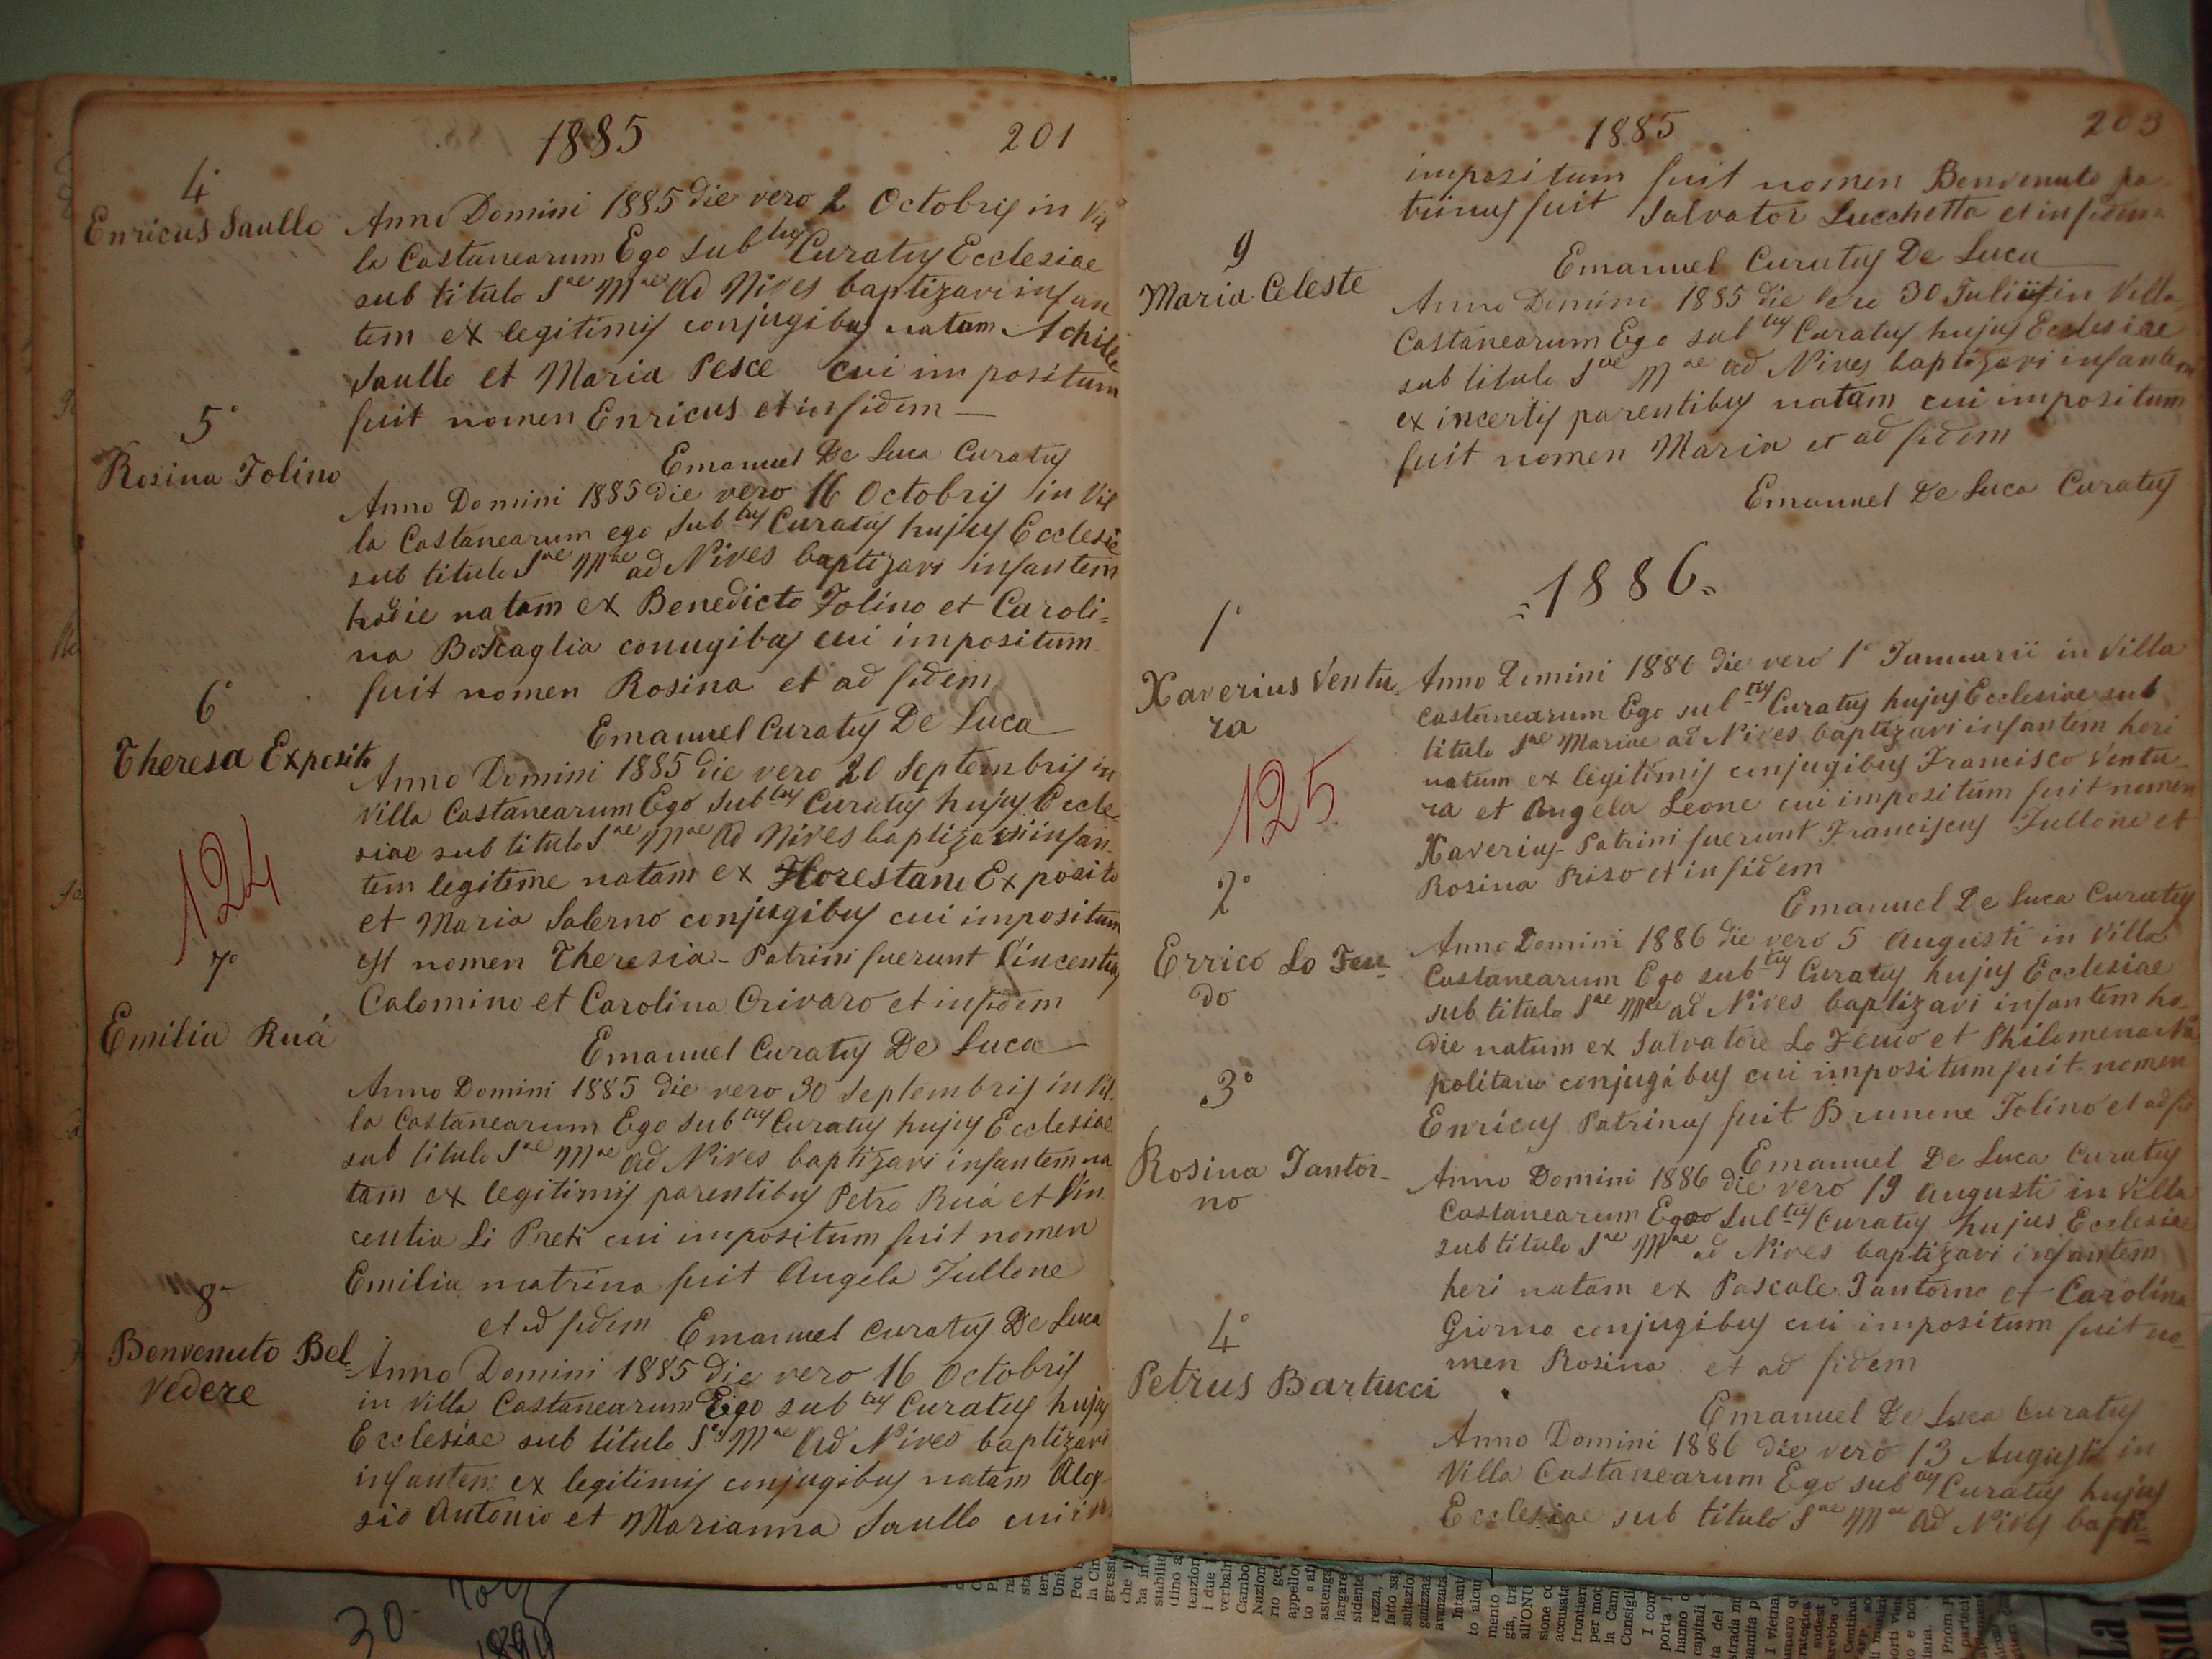 1885
201
4°
Enricus Saullo
Anno Domini 1885 die vero 2 Octobris in Vil
la Castanearum Ego Sub tus Curatus Ecclesiae
sub titulo Sae Mae ad Nives baptizavi infan
tem ex legitimis conjugibus natam Achille
Saullo et Maria Pesce cui impositum
fuit nomen Enricus et in fidem —
Emanuel De Luca Curatus
5°
Rosina Folino
Anno Domini 1885 die vero 16 Octobris in Vil
la Castanearum ego Sub tus Curatus hujus Ecclesie
sub titulo Sae Mae ad Nives baptizavi infantem
hodie natam ex Benedicto Folino et Caroli=
na Boscaglia conugibus cui impositum
fuit nomen Rosina et ad fidem
Emanuel Curatus De Luca
6°
Theresa Exposito
Anno Domini 1885 die vero 20 Septembris in
Villa Castanearum Ego Sub tus Curatus hujus Eccle
siae sub titulo Sae Mae ad Nives baptizavi infan
tem legitime natam ex Florestano Exposito
et Maria Salerno conjugibus cui impositum
est nomen Theresia - Patrini fuerunt Vincentius
Calomino et Carolina Crivaro et in fidem
Emanuel Curatus De Luca
124
7°
Emilia Ruá
Anno Domini 1885 die vero 30 Septembris in Vil-
la Castanearum Ego Sub tus Curatus hujus Ecclesiae
sub titulo Sae Mae ad Nives baptizavi infantem na
tam ex legitimis parentibus Petro Ruá et Vin
centia Li Preti cui impositum fuit nomen
Emilia matrina fuit Angela Fullone
et ad fidem Emanuel Curatus De Luca
8°
Benvenuto Bel-
vedere
Anno Domini 1885 die vero 16 Octobris
in villa Castanearum Ego sub tus Curatus hujus
Ecclesiae sub titulo Sae Mae ad Nives baptizavi
infantem ex legitimis conjugibus natam Aloy-
sio Antonio et Marianna Saullo cui im
1885
203
impositum fuit nomen Benvenuto pa
trinus fuit Salvator Lucchetta et in fidem
Emanuel Curatus De Luca
9
Maria Celeste
Anno Domini 1885 die vero 30 Julii in Villa
Castanearum Ego sub tus Curatus hujus Ecclesiae
sub titulo Sae Mae ad Nives baptizavi infantem
ex incertis parentibus natam cui impositum
fuit nomen Maria et ad fidem
Emanuel De Luca Curatus
=1886=
1°
Xaverius Ventu
ra
Anno Domini 1886 die vero 1° Januarii in Villa
Castanearum Ego sub tus Curatus hujus Ecclesiae sub
titulo Sae Mariae ad Nives baptizavi infantem heri
natum ex legitimis conjugibus Francisco Ventu
ra et Angela Leone cui impositum fuit nomen
Xaverius - Patrini fuerunt Franciscus Fullone et
Rosina Priso et in fidem
Emanuel De Luca Curatus
125
2°
Errico Lo Feu-
do
Anno Domini 1886 die vero 5 Augusti in Villa
Castanearum Ego sub tus Curatus hujus Ecclesiae
sub titulo Sae Mae ad Nives baptizavi infantem ho-
die natum ex Salvatore Lo Feudo et Philomena Na
politano conjugibus cui impositum fuit nomen
Enricus Patrinus fuit Brunone Folino et ad fi
Emanuel De Luca Curatus
3°
Rosina Tantor-
no
Anno Domini 1886 die vero 19 Augusti in Villa
Castanearum Ego Sub tus Curatus hujus Ecclesiae
sub titulo Sae Mae ad Nives baptizavi infantem
heri natam ex Pascale Tantorno et Carolina
Giorno conjugibus cui impositum fuit no-
men Rosina et ad fidem
Emanuel De Luca Curatus
4°
Petrus Bartucci
Anno Domini 1886 die vero 13 Augusti in
Villa Castanearum Ego sub tus Curatus hujus
Ecclesiae sub titulo Sae Mae ad Nives bapti=
30